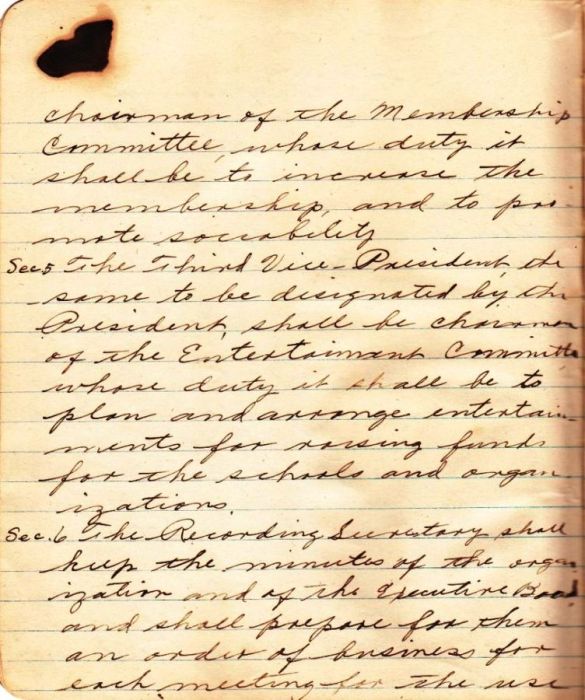 chairman of the Membership
Committee, whose duty it
shall be to increase the
membership, and to pro-
mote sociability
Sec 5 The Third Vice-President, the
same to be designated by the
President, shall be chairman
of the Entertaiment Committe
whose duty it shall be to
plan and arrange entertain-
ments for raising funds
for the schools and organ-
izations.
Sec. 6 The Recording Secretary shall
keep the minutes of the organ
ization and of the Executive Board
and shall prepare for them
an order of business for
each meeting for the use